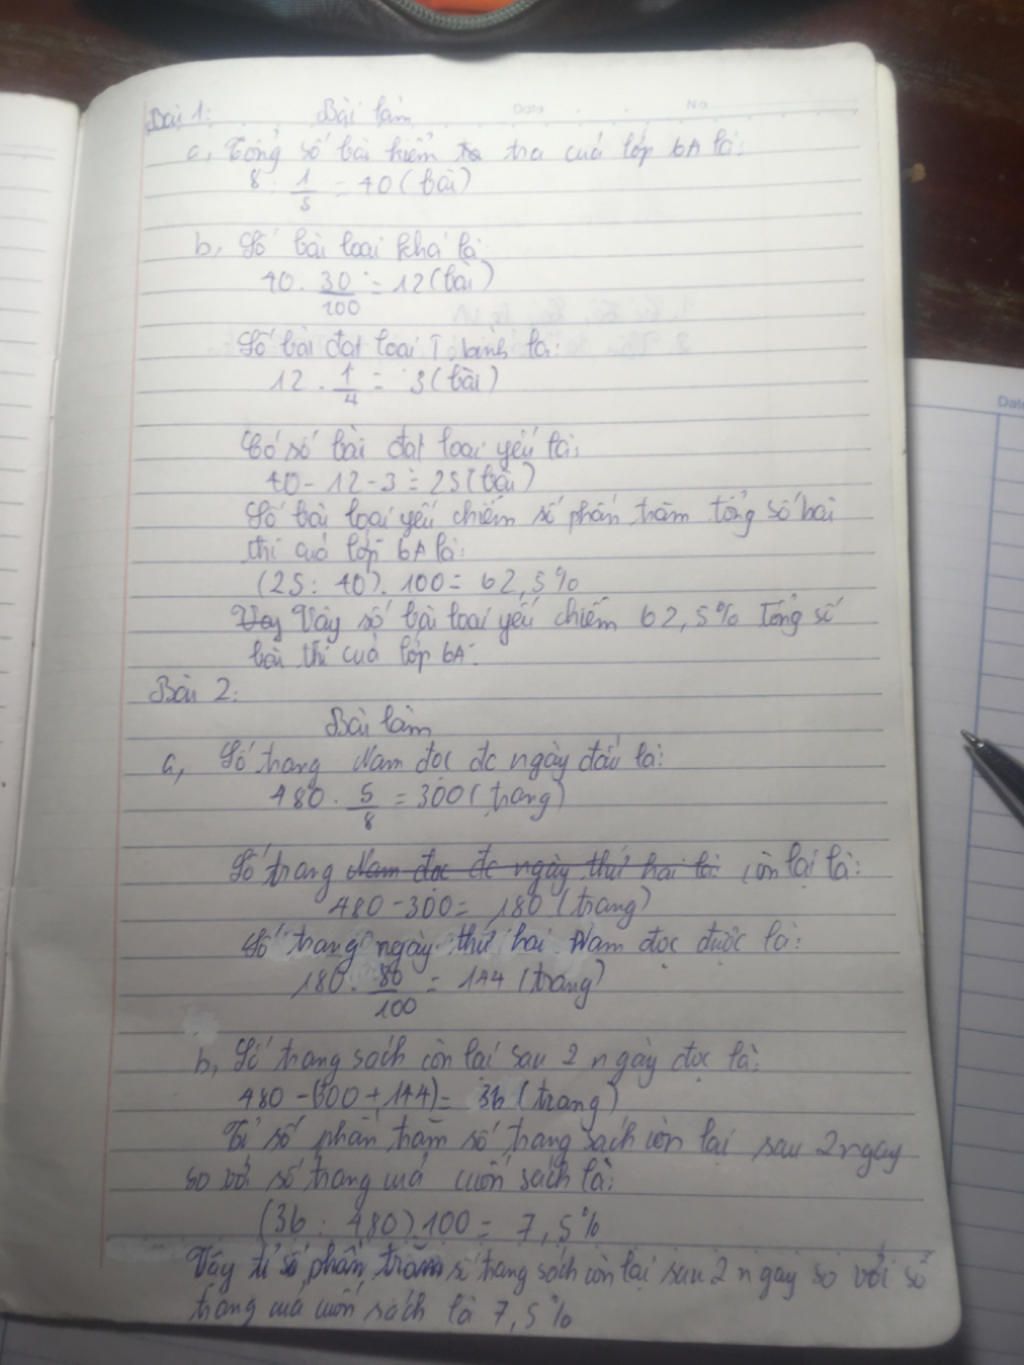 Date No
Bài 1: Bài làm
a, Tổng số bài kiểm tra của lớp 6A là:
8 : 1/5 = 40 (bài)
b, Số bài loại khá là:
40 . 30/100 = 12 (bài)
Số bài đạt loại T. bình là:
12 . 1/4 = 3 (bài)
Có số bài đạt loại yếu là:
40 - 12 - 3 = 25 (bài)
Số bài loại yếu chiếm số phần trăm tổng số bài
thi của lớp 6A là:
(25 : 40) . 100 = 62,5%
Vậy số bài loại yếu chiếm 62,5% tổng số
bài thi của lớp 6A.
Bài 2:
Bài làm
a, Số trang Nam đọc đc ngày đầu là:
480 . 5/8 = 300 (trang)
Số trang Nam đọc đc ngày thứ hai là còn lại là:
480 - 300 = 180 (trang)
Số trang ngày thứ hai Nam đọc được là:
180 . 80/100 = 144 (trang)
b, Số trang sách còn lại sau 2 ngày đọc là:
480 - (300 + 144) = 36 (trang)
Tỉ số phần trăm số trang sách còn lại sau 2 ngay
so với số trang cuả cuốn sách là:
(36 : 480) . 100 = 7,5%
Vậy tỉ số phần trăm số trang sách còn lại sau 2 ngay so với số
trang cuả cuốn sách là 7,5%
Date